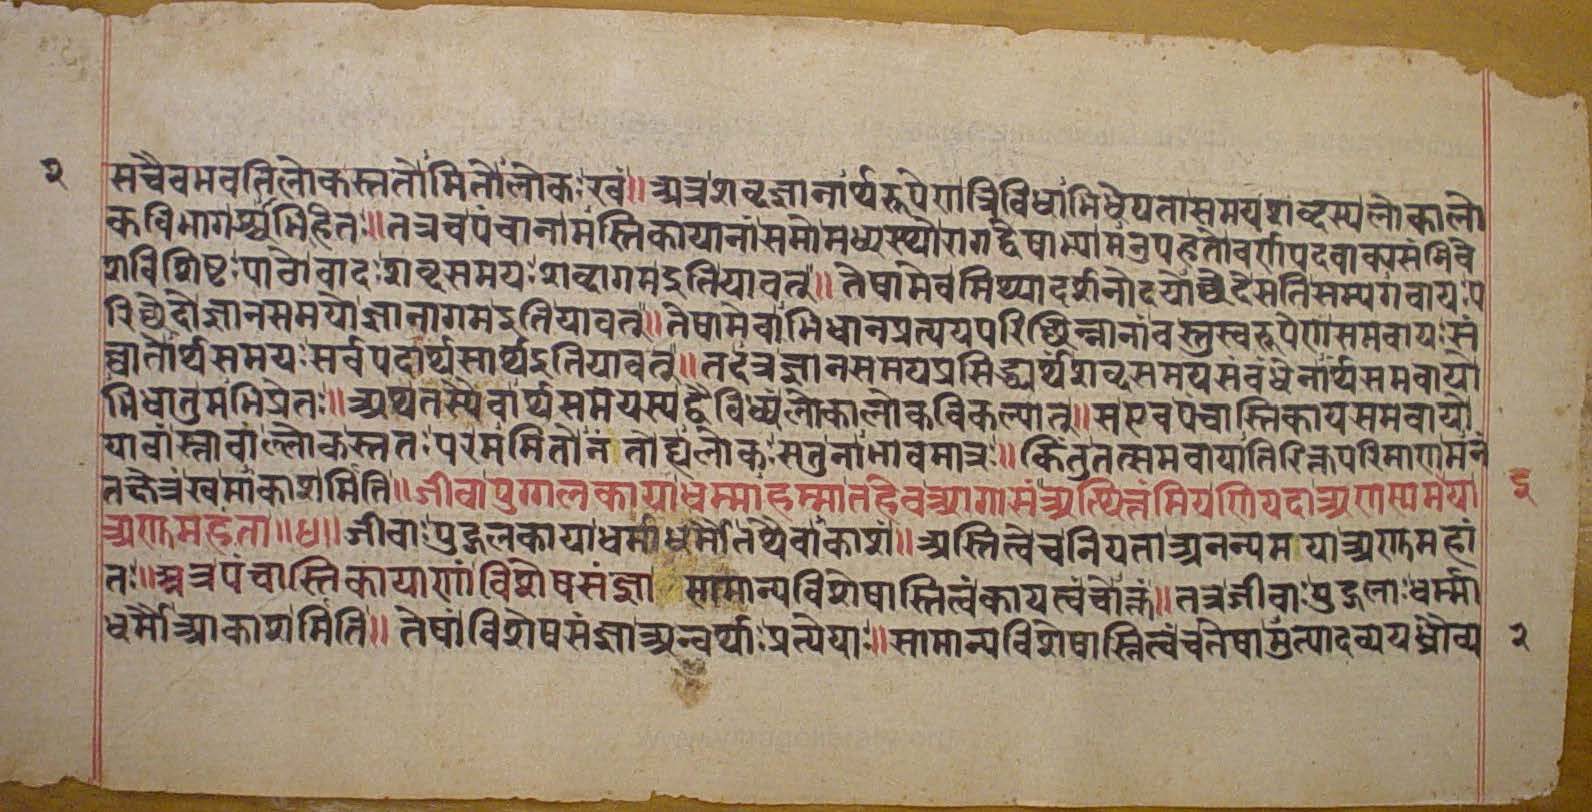 २ सचैवभवतिलोकस्ततोमितोलोकःखं॥ अत्रशब्दज्ञानार्थरूपेणत्रिविधाभिधेयतासमयशब्दस्यलोकालो
कविभागश्चाभिहितः॥ तत्रचपंचानामस्तिकायानांसमोमध्यस्थोरागद्वेषाभ्यामनुपहतोवर्णपदवाक्यसंनिवे
शविशिष्टःपाठोवादःशब्दसमयःशब्दागमइतियावत्॥ तेषामेवमिथ्यादर्शनोदयोच्छेदेसतिसम्यगवायःप
रिच्छेदोज्ञानसमयोज्ञानागमइतियावत्॥ तेषामेवाभिधानप्रत्ययपरिच्छिन्नानांवस्तुस्वरूपेणसमवायःसं
घातोर्थसमयःसर्वपदार्थसार्थइतियावत्॥ तदत्रज्ञानसमयप्रसिद्ध्यर्थंशब्दसमयसंबंधेनार्थसमवायो
भिधातुमभिप्रेतः॥ अथतस्यैवार्थसमयस्यद्वैविध्यंलोकालोकविकल्पात्॥ सएवपंचास्तिकायसमवायो
यावांस्तावांल्लोकस्ततःपरममितोनंतोह्यलोकःसतुनाभावमात्रः॥ किंतुतत्समवायातिरिक्तपरिमाणमनं
तक्षेत्रंखमाकाशमिति॥ जीवापुग्गलकायाधम्माहम्मातहेवआगासंअत्थित्तंमियणियदाअणणमया
अणुमहंता॥४॥ जीवाःपुद्गलकायाधर्माधर्मौतथैवाकाशं॥ अस्तित्वेचनियताअनन्यमयाअणुमहां
तः॥ अत्रपंचास्तिकायाणांविशेषसंज्ञा सामान्यविशेषास्तित्वंकायत्वंचोक्तं॥ तत्रजीवाःपुद्गलाःधर्म्मा
धर्मौआकाशमिति॥ तेषांविशेषसंज्ञाअन्वर्थाःप्रत्येयाः॥ सामान्यविशेषास्तित्वंचतेषामुत्पादव्ययध्रौव्य २